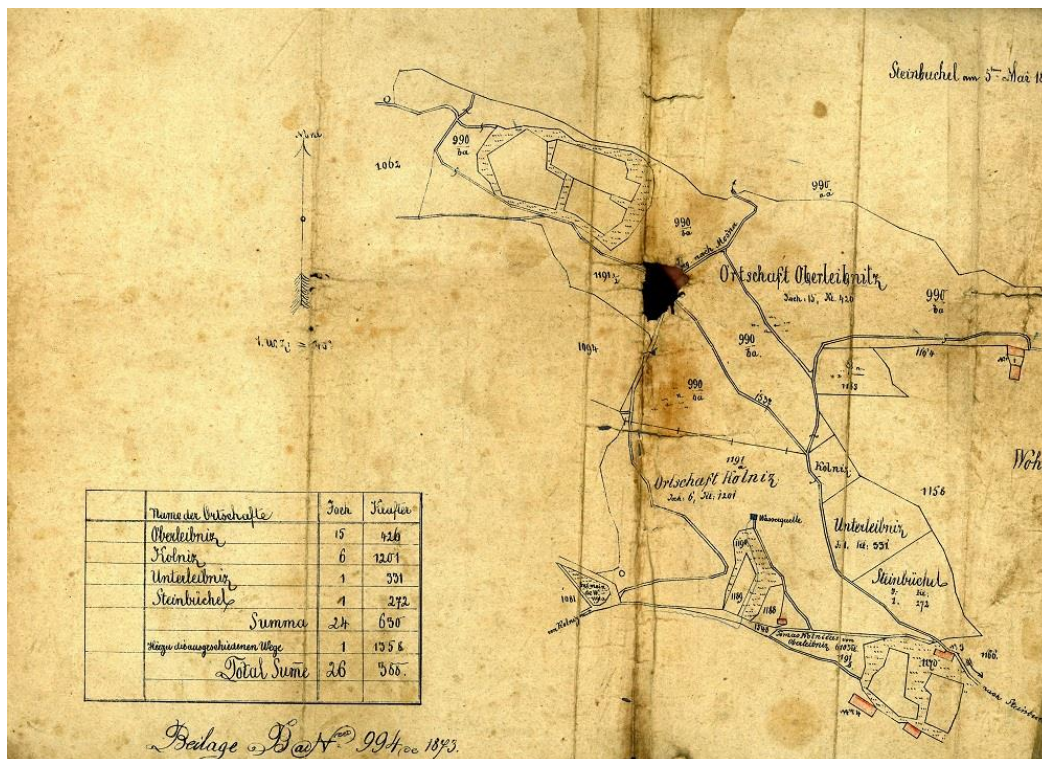 Steinbüchel am 5ten Mai 18
Nord
990
ba
1062
990
aa
990
ba
Weg nach Modna
1191
Ortschaft Oberleibnitz
Joch: 15, Kl. 426
990
ba
990
ba.
1094
1164
1165
990
ba
1532
1191
a
Ortschaft Kolniz
Joch: 6, Kl: 1201
Kolniz
1156
Woh
Unterleibniz
J: 1. Kl: 331
Wasserquelle
1190
Steinbüchel
J: Kl:
1. 272
1189
1188
1081
von Kolniz
1548
Tomas Kolnitzer von
Oberleibniz
1191
1170
1160.
nach Steinbü
Name der Ortschafte Joch Klafter
Oberleibniz 15 426
Kolniz 6 1201
Unterleibniz 1 331
Steinbüchel 1 272
Summa 24 630
Hiezu die ausgeschiedenen Wege 1 1336
Total Sume 26 366.
Beilage B ad Nro 994 de 1873.